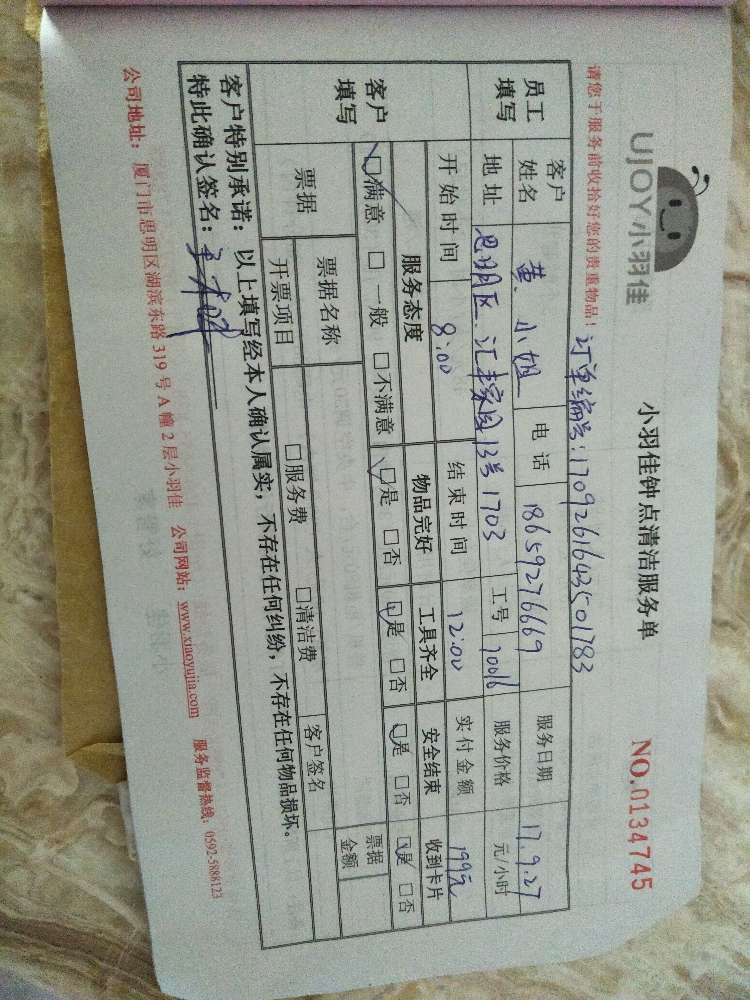 UJOY小羽佳
小羽佳钟点清洁服务单
NO.0134745
请您于服务前收拾好您的贵重物品！
订单编号:1709261643501783
员工填写
客户姓名 黄小姐 电话 18659276669 服务日期 17.9.27
地址 思明区.汇丰家园13号1703 工号 20016 服务价格 元/小时
开始时间 8:00 结束时间 12:00 实付金额 199元
客户填写
服务态度 物品完好 工具齐全 安全结束 收到卡片
□满意 □一般 □不满意 □是 □否 □是 □否 □是 □否 □是 □否
票据 票据名称 客户签名 票据金额
开票项目 □服务费 □清洁费
客户特别承诺：以上填写经本人确认属实，不存在任何纠纷，不存在任何物品损坏。
特此确认签名：
公司地址：厦门市思明区湖滨东路319号A幢2层小羽佳 公司网站：www.xiaoyujia.com 服务监督热线：0592-5888123